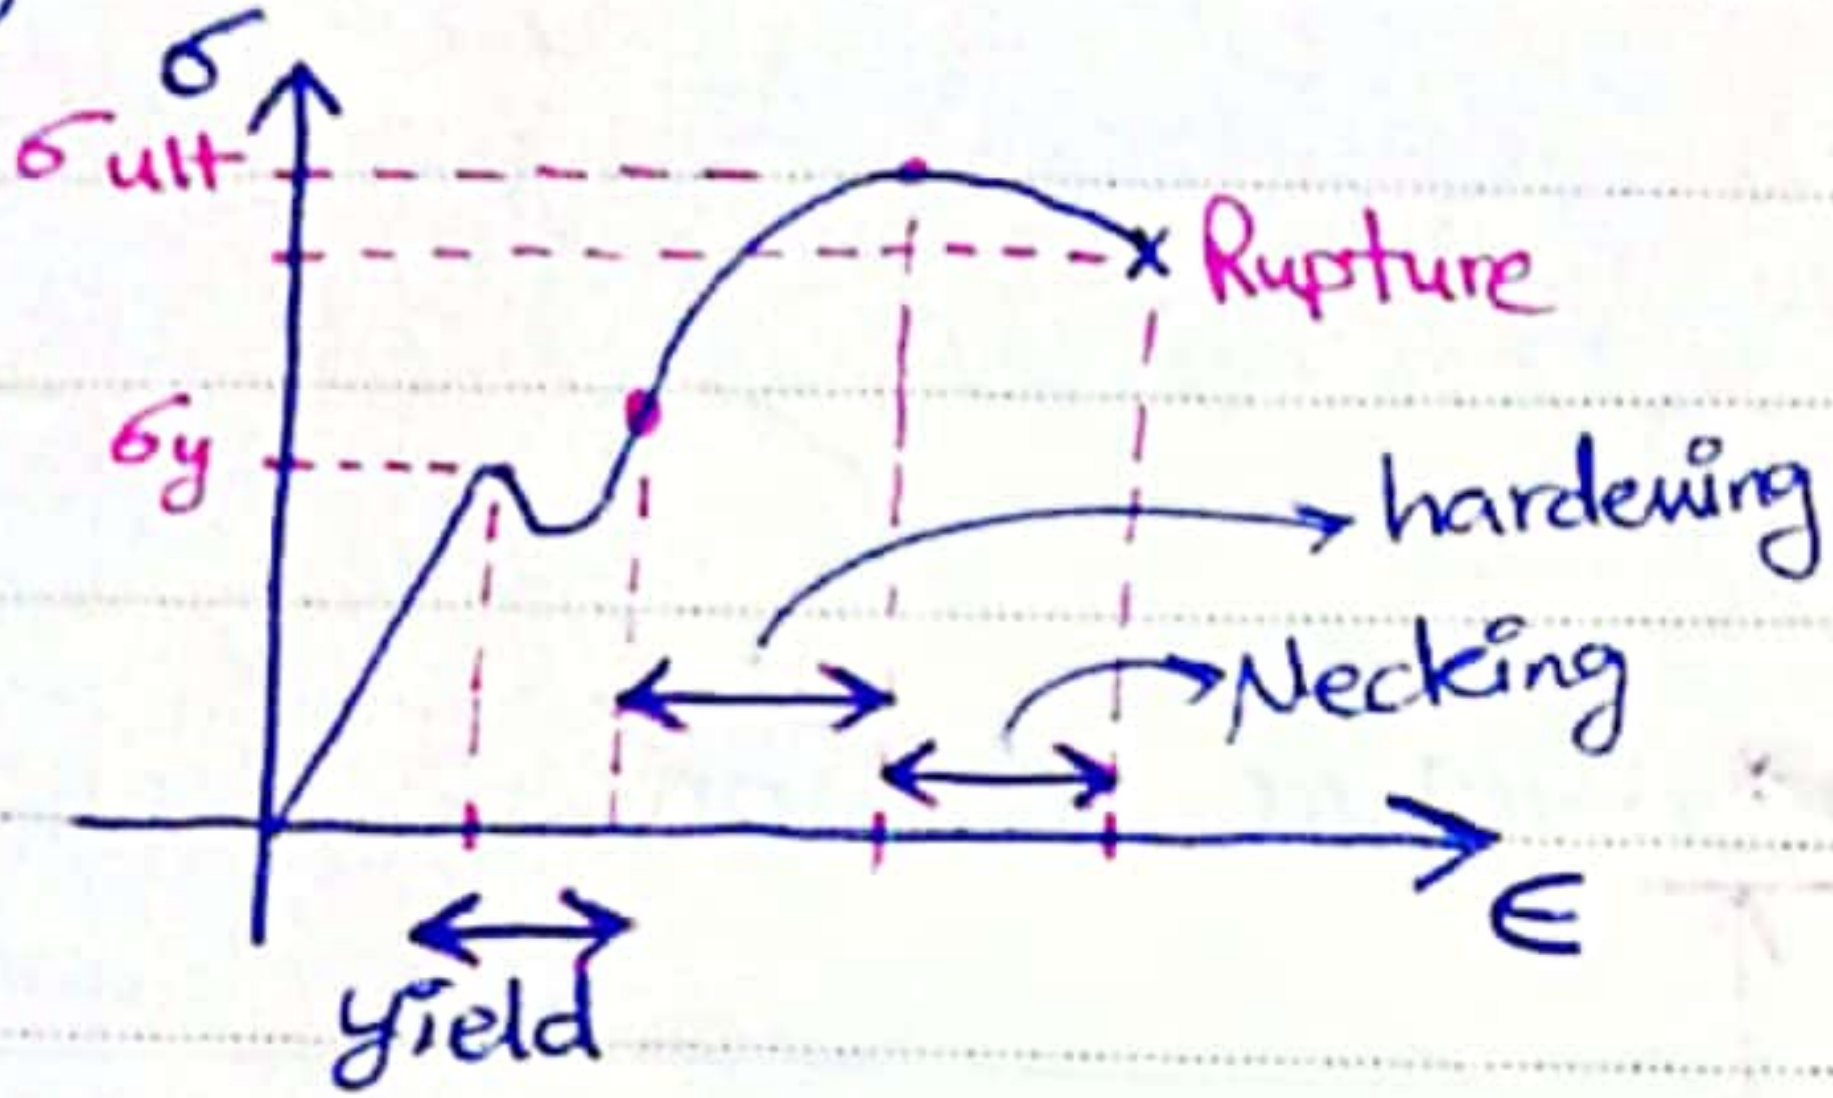 σ
σult
Rupture
σy
hardening
Necking
ϵ
yield